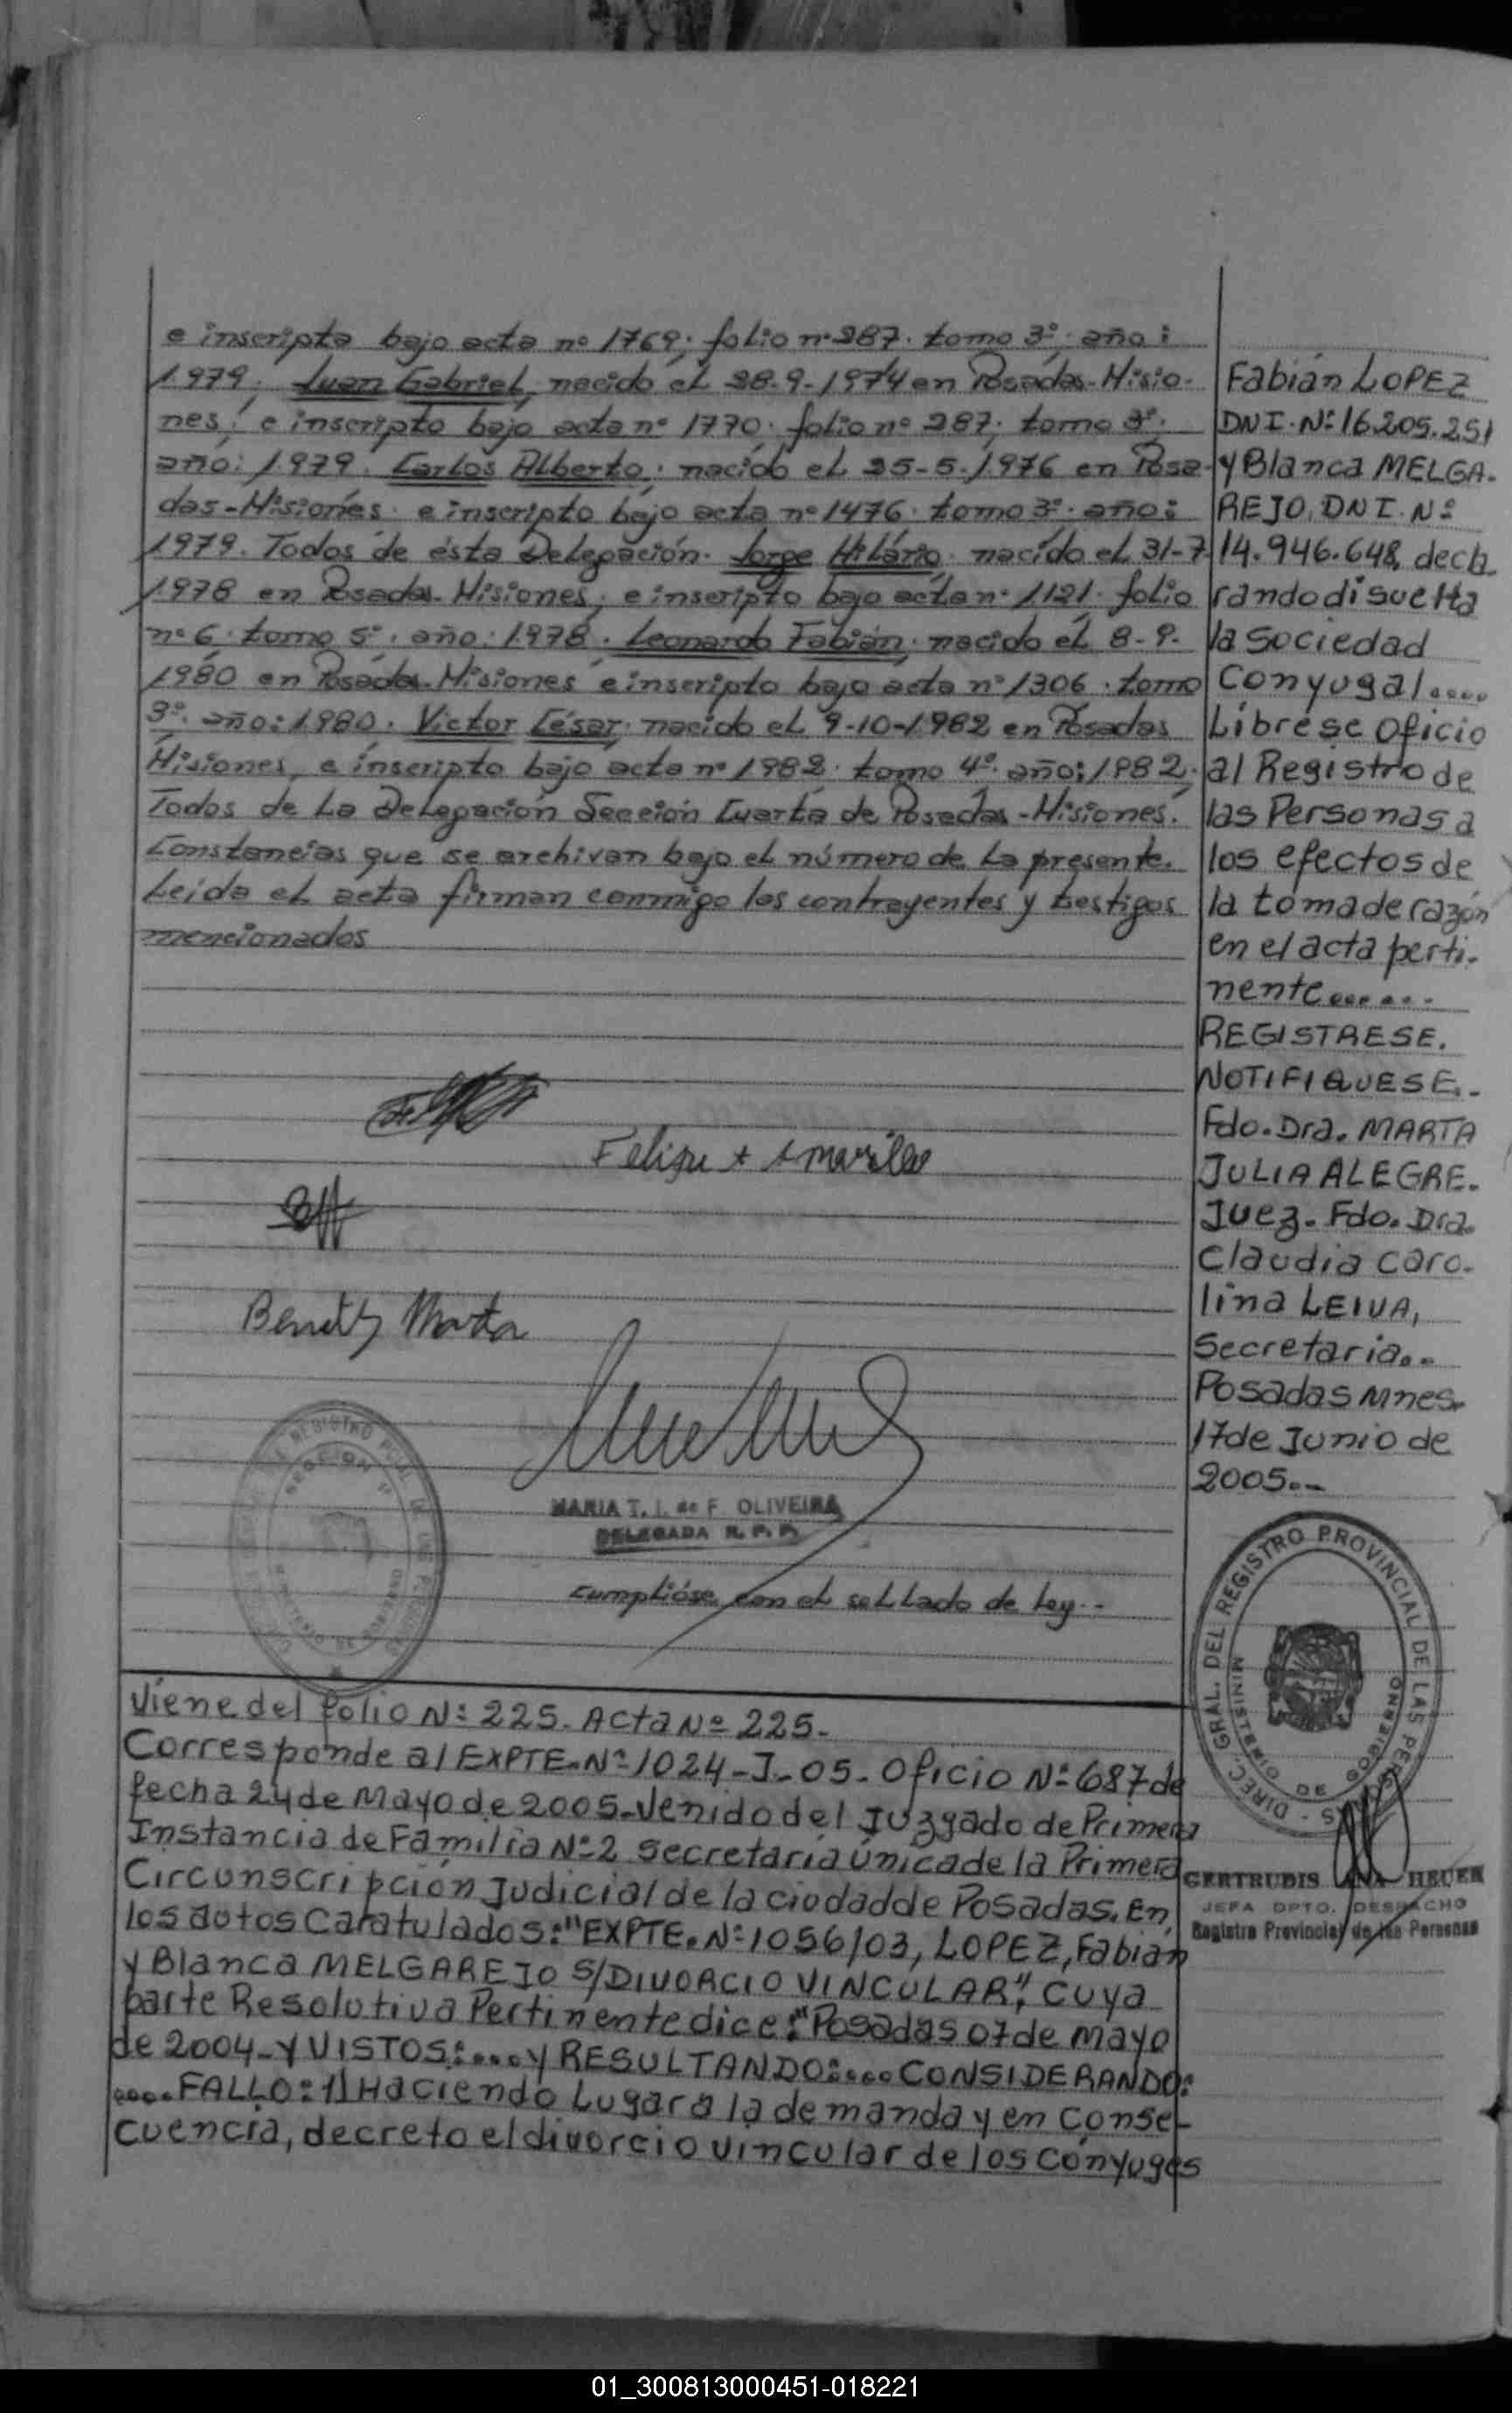 e inscripto bajo acta nº 1769; folio nº 287. tomo 3º; año:
1979; Juan Gabriel, nacido el 28-9-1974 en Posadas-Misio-
nes; e inscripto bajo acta nº 1770. folio nº 287; tomo 3º.
año: 1979. Carlos Alberto; nacido el 25-5-1976 en Posa-
das-Misiones. e inscripto bajo acta nº 1476. tomo 3º. año:
1979. Todos de ésta Delegación. Jorge Hilário. nacído el 31-7-
1978 en Posadas-Misiones; e inscripto bajo acta nº 1121. folio
nº 6. tomo 5º. año: 1978. Leonardo Fabián; nacido el 8-9-
1980 en Posadas-Misiones e inscripto bajo acta nº 1306. tomo
3º. año: 1980. Victor César; nacido el 9-10-1982 en Posadas
Misiones, e inscripto bajo acta nº 1982. tomo 4º. año: 1982.
Todos de la Delegación Sección Cuarta de Posadas-Misiones.
Constancias que se archivan bajo el número de la presente.
Leída el acta firman conmigo los contrayentes y testigos
mencionados
Benitez
MARIA T. I. de F. OLIVEIRA
DELEGADA R. P. P.
Cumplióse con el sellado de ley.-
Viene del folio Nº 225. Acta Nº 225.
Corresponde al EXPTE. Nº 1024-J-05- Oficio Nº 687 de
fecha 24 de Mayo de 2005-Venido del Juzgado de Primera
Instancia de Familia Nº 2 Secretaría Única de la Primera
Circunscripción Judicial de la ciudad de Posadas. En
los autos Caratulados: "EXPTE. Nº 1056/03, LOPEZ, Fabián
y Blanca MELGAREJO S/DIVORCIO VINCULAR", Cuya
parte Resolutiva Pertinente dice: "Posadas 07 de Mayo
de 2004-Y VISTOS:....Y RESULTANDO:....CONSIDERANDO:
....FALLO: 1) Haciendo Lugar a la demanda y en Conse-
cuencia, decreto el divorcio vincular de los Cónyuges
Fabián LOPEZ
DNI. Nº 16.205.251
y Blanca MELGA-
REJO, DNI. Nº
14.946.648, decla-
rando disuelta
la Sociedad
Conyugal.....
Líbrese Oficio
al Registro de
las Personas a
los efectos de
la toma de razón
en el acta perti-
nente......
REGISTRESE.
NOTIFIQUESE.-
Fdo. Dra. MARTA
JULIA ALEGRE.
Juez. Fdo. Dra.
Claudia Caro-
lina LEIVA,
Secretaria..
Posadas Mnes.
17 de Junio de
2005.-
DIREC. GRAL. DEL REGISTRO PROVINCIAL DE LAS PERSONAS -
MINISTERIO DE GOBIERNO
GERTRUDIS ANA HEUER
JEFA DPTO. DESPACHO
Registro Provincial de las Personas
01_300813000451-018221